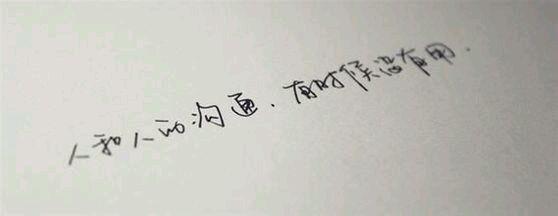 人和人的沟通，有时候没有用.